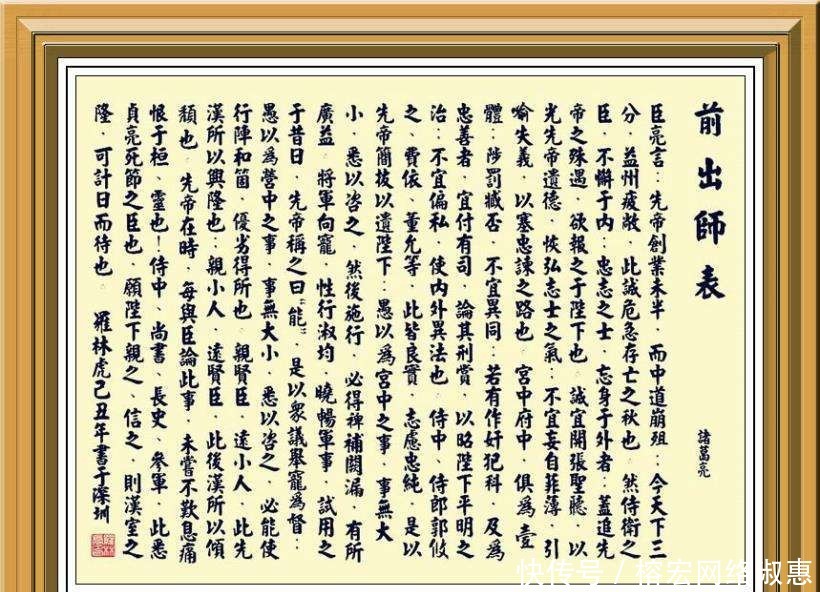 前出師表
諸葛亮
臣亮言：先帝創業未半．而中道崩殂：今天下三
分．益州疲敝．此誠危急存亡之秋也．然侍衛之
臣．不懈于内：忠志之士．忘身于外者：蓋追先
帝之殊遇．欲報之于陛下也．誠宜開張聖聽．以
光先帝遺德．恢弘志士之氣：不宜妄自菲薄．引
喻失義．以塞忠諫之路也．宮中府中．俱爲壹
體：陟罰臧否．不宜異同：若有作奸犯科．及爲
忠善者．宜付有司．論其刑賞．以昭陛下平明之
治：不宜偏私．使内外異法也．侍中、侍郎郭攸
之、費依、董允等．此皆良實．志慮忠純．是以
先帝簡拔以遺陛下：愚以爲宮中之事．事無大
小．悉以咨之．然後施行．必得裨補闕漏．有所
廣益．將軍向寵．性行淑均．曉暢軍事．試用之
于昔日．先帝稱之曰“能”．是以衆議舉寵爲督：
愚以爲營中之事．事無大小．悉以咨之．必能使
行陣和箇．優劣得所也．親賢臣．遠小人．此先
漢所以興隆也：親小人．遠賢臣．此後漢所以傾
頹也．先帝在時．每與臣論此事．未嘗不歎息痛
恨于桓、靈也！侍中、尚書、長史、參軍．此悉
貞亮死節之臣也．願陛下親之、信之．則漢室之
隆．可計日而待也．
羅林虎己丑年書于深圳
快传号／榕宏网络淑惠